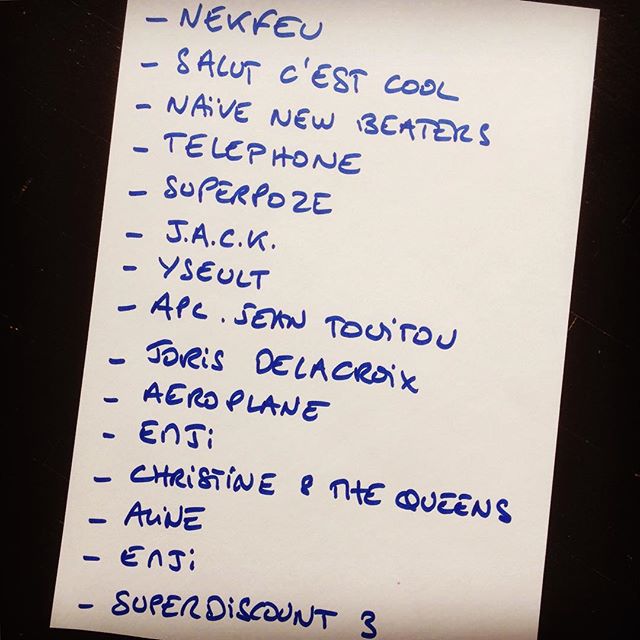 - NEKFEU
- SALUT C'EST COOL
- NAÏVE NEW BEATERS
- TELEPHONE
- SUPERPOZE
- J.A.C.K.
- YSEULT
- APC. JEAN TOUITOU
- JORIS DELACROIX
- AEROPLANE
- ENJI
- CHRISTINE & THE QUEENS
- ALINE
- ENJI
- SUPERDISCOUNT 3